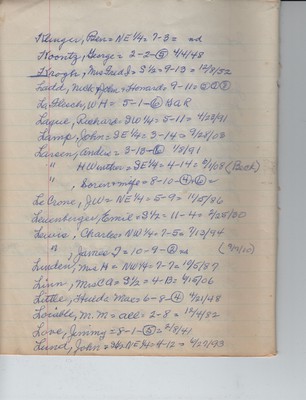 Klinger, Ben = NE 1/4 = 7-3 = nd
Koontz, George = 2-2-⑤ 4/4/48
Krogh, Mrs Fred J = S 1/2 = 9-13 =
Ladd, Nick, John & Howard = 9-11 = ①②③
La Flesch, W H = 5-1-⑥ B&R
Lague, Richard = SW 1/4 = 5-11 = 4/23/91
Lamp, John = SE 1/4 = 3-14 = 9/28/08
Larsen, Andie = 3-10-⑥ 4/8/91
" H Winther = SE 1/4 = 4-14 = (Back)
" Soren & wife = 8-10-④⑥ =
Le Crone, J W = NE 1/4 = 5-9 = 11/5/86
Leuenberger, Emil = S 1/2 = 11-4 = 6/25/20
Lewis, Charles = NW 1/4 = 7-5 = 7/12/94
" , James T = 10-9-② = nd
Linden, Mrs H = NW 1/4 = 7-7 = 10/5/87
Linn, Mrs = S 1/2 = 4-B = 4/15/06
Little, Hulda Mae = 6-8-④ 4/21/48
Lociale, M. M = all = 2-8 = 12/4/82
Love, Jimmy = 8-1-⑤ = 2/8/41
Lund, John = NE 1/4 = 9-12 = 4/27/93